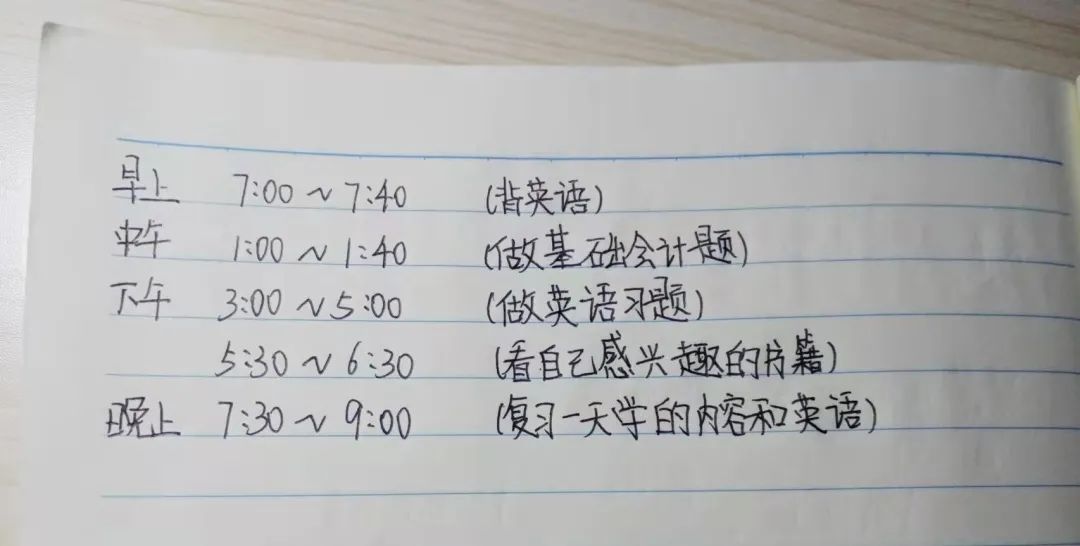 早上 7:00 ~ 7:40 (背英语)
中午 1:00 ~ 1:40 (做基础会计题)
下午 3:00 ~ 5:00 (做英语习题)
5:30 ~ 6:30 (看自己感兴趣的书籍)
晚上 7:30 ~ 9:00 (复习一天学的内容和英语)